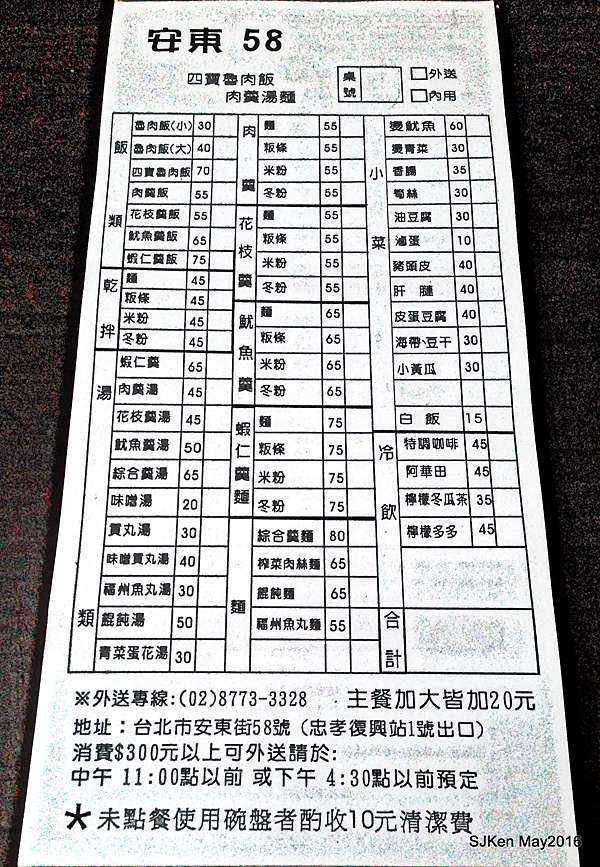 安東 58
四寶魯肉飯
肉羹湯麵
桌號
□外送
□內用
飯類
魯肉飯(小) 30
魯肉飯(大) 40
四寶魯肉飯 70
肉羹飯 55
花枝羹飯 55
魷魚羹飯 65
蝦仁羹飯 75
乾拌
麵 45
粄條 45
米粉 45
冬粉 45
湯類
蝦仁羹 65
肉羹湯 45
花枝羹湯 45
魷魚羹湯 50
綜合羹湯 65
味噌湯 20
貢丸湯 30
味噌貢丸湯 40
福州魚丸湯 30
餛飩湯 50
青菜蛋花湯 30
肉羹
麵 55
粄條 55
米粉 55
冬粉 55
花枝羹
麵 55
粄條 55
米粉 55
冬粉 55
魷魚羹
麵 65
粄條 65
米粉 65
冬粉 65
蝦仁羹麵
麵 75
粄條 75
米粉 75
冬粉 75
麵
綜合羹麵 80
榨菜肉絲麵 65
餛飩麵 65
福州魚丸麵 55
小菜
燙魷魚 60
燙青菜 30
香腸 35
筍絲 30
油豆腐 30
滷蛋 10
豬頭皮 40
肝腱 40
皮蛋豆腐 40
海帶、豆干 30
小黃瓜 30
白飯 15
冷飲
特調咖啡 45
阿華田 45
檸檬冬瓜茶 35
檸檬多多 45
合計
※外送專線:(02)8773-3328 主餐加大皆加20元
地址：台北市安東街58號（忠孝復興站1號出口）
消費$300元以上可外送請於:
中午 11:00點以前 或下午 4:30點以前預定
＊未點餐使用碗盤者酌收10元清潔費
SJKen May2016